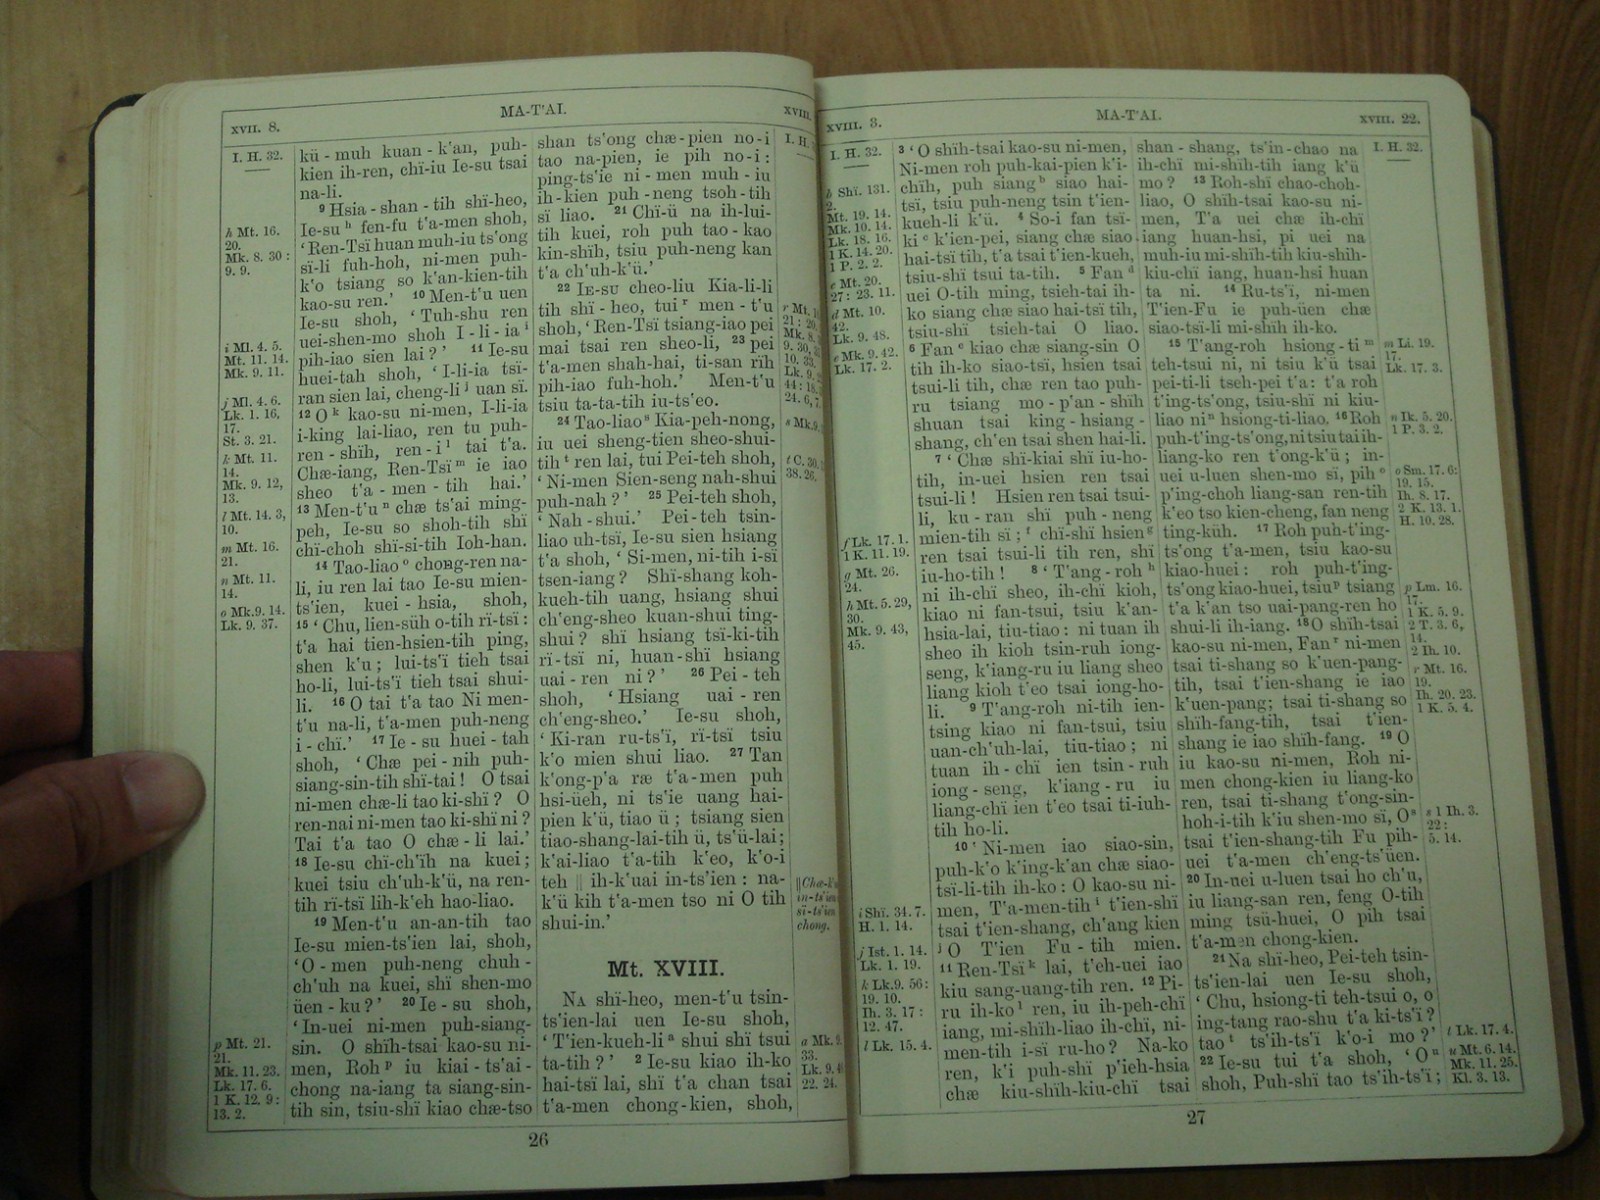 XVII. 8.
MA-T'AI.
XVIII.
I. H. 32.
kü-muh kuan-k'an, puh-
kien ih-ren, chï-iu Ie-su tsai
na-li.
⁹ Hsia-shan-tih shï-heo,
Ie-su ʰ fen-fu t'a-men shoh,
'Ren-Tsï huan muh-iu ts'ong
sï-li fuh-hoh, ni-men puh-
k'o tsiang so k'an-kien-tih
kao-su ren.' ¹⁰ Men-t'u uen
Ie-su shoh, 'Tuh-shu ren
uei-shen-mo shoh I-li-ia ⁱ
pih-iao sien lai?' ¹¹ Ie-su
huei-tah shoh, 'I-li-ia tsï-
ran sien lai, cheng-li ʲ uan sï.
¹² O ᵏ kao-su ni-men, I-li-ia
i-king lai-liao, ren tu puh-
ren-shïh, ren-i ˡ tai t'a.
Chæ-iang, Ren-Tsï ᵐ ie iao
sheo t'a-men-tih hai.'
¹³ Men-t'u ⁿ chæ ts'ai ming-
peh, Ie-su so shoh-tih shï
chï-choh shï-si-tih Ioh-han.
¹⁴ Tao-liao ᵒ chong-ren na-
li, iu ren lai tao Ie-su mien-
ts'ien, kuei-hsia, shoh,
¹⁵ 'Chu, lien-süh o-tih rï-tsï:
t'a hai tien-hsien-tih ping,
shen k'u; lui-ts'ï tieh tsai
ho-li, lui-ts'ï tieh tsai shui-
li. ¹⁶ O tai t'a tao Ni men-
t'u na-li, t'a-men puh-neng
i-chï.' ¹⁷ Ie-su huei-tah
shoh, 'Chæ pei-nih puh-
siang-sin-tih shï-tai! O tsai
ni-men chæ-li tao ki-shï? O
ren-nai ni-men tao ki-shï ni?
Tai t'a tao O chæ-li lai.'
¹⁸ Ie-su chï-ch'ïh na kuei;
kuei tsiu ch'uh-k'ü, na ren-
tih rï-tsï lih-k'eh hao-liao.
¹⁹ Men-t'u an-an-tih tao
Ie-su mien-ts'ien lai, shoh,
'O-men puh-neng chuh-
ch'uh na kuei, shï shen-mo
üen-ku?' ²⁰ Ie-su shoh,
'In-uei ni-men puh-siang-
sin. O shïh-tsai kao-su ni-
men, Roh ᵖ iu kiai-ts'ai-
chong na-iang ta siang-sin-
tih sin, tsiu-shï kiao chæ-tso
h Mt. 16.
20.
Mk. 8. 30:
9. 9.
i Ml. 4. 5.
Mt. 11. 14.
Mk. 9. 11.
j Ml. 4. 6.
Lk. 1. 16,
17.
St. 3. 21.
k Mt. 11.
14.
Mk. 9. 12,
13.
l Mt. 14. 3,
10.
m Mt. 16.
21.
n Mt. 11.
14.
o Mk. 9. 14.
Lk. 9. 37.
p Mt. 21.
21.
Mk. 11. 23.
Lk. 17. 6.
1 K. 12. 9:
13. 2.
shan ts'ong chæ-pien no-i
tao na-pien, ie pih no-i:
ping-ts'ie ni-men muh-iu
ih-kien puh-neng tsoh-tih
sï liao. ²¹ Chï-ü na ih-lui-
tih kuei, roh puh tao-kao
kin-shïh, tsiu puh-neng kan
t'a ch'uh-k'ü.'
²² IE-SU cheo-liu Kia-li-li
tih shï-heo, tui ʳ men-t'u
shoh, 'Ren-Tsï tsiang-iao pei
mai tsai ren sheo-li, ²³ pei
t'a-men shah-hai, ti-san rïh
pih-iao fuh-hoh.' Men-t'u
tsiu ta-ta-tih iu-ts'eo.
²⁴ Tao-liao ˢ Kia-peh-nong,
iu uei sheng-tien sheo-shui-
tih ᵗ ren lai, tui Pei-teh shoh,
'Ni-men Sien-seng nah-shui
puh-nah?' ²⁵ Pei-teh shoh,
'Nah-shui.' Pei-teh tsin-
liao uh-tsï, Ie-su sien hsiang
t'a shoh, 'Si-men, ni-tih i-sï
tsen-iang? Shï-shang koh-
kueh-tih uang, hsiang shui
ch'eng-sheo kuan-shui ting-
shui? shï hsiang tsï-ki-tih
rï-tsï ni, huan-shï hsiang
uai-ren ni?' ²⁶ Pei-teh
shoh, 'Hsiang uai-ren
ch'eng-sheo.' Ie-su shoh,
'Ki-ran ru-ts'ï, rï-tsï tsiu
k'o mien shui liao. ²⁷ Tan
k'ong-p'a ræ t'a-men puh
hsi-üeh, ni ts'ie uang hai-
pien k'ü, tiao ü; tsiang sien
tiao-shang-lai-tih ü, ts'ü-lai;
k'ai-liao t'a-tih k'eo, k'o-i
teh ‖ ih-k'uai in-ts'ien: na-
k'ü kih t'a-men tso ni O tih
shui-in.'
Mt. XVIII.
NA shï-heo, men-t'u tsin-
ts'ien-lai uen Ie-su shoh,
'T'ien-kueh-li ᵃ shui shï tsui
ta-tih?' ² Ie-su kiao ih-ko
hai-tsï lai, shï t'a chan tsai
t'a-men chong-kien, shoh,
I. H.
r Mt.
21: 20,
Mk. 8.
9. 30,
10. 33.
Lk. 9.
44: 18.
24. 6, 7.
s Mk. 9.
t C. 30.
38. 26.
in-ts'ien
chong.
a Mk. 9.
33.
Lk. 9.
22. 24.
26
XVIII. 3.
MA-T'AI.
XVIII. 22.
I. H. 32.
h Shï. 131.
2.
Mt. 19. 14.
Mk. 10. 14.
Lk. 18. 16.
1 K. 14. 20.
1 P. 2. 2.
c Mt. 20.
27: 23. 11.
d Mt. 10.
42.
Lk. 9. 48.
e Mk. 9. 42.
Lk. 17. 2.
f Lk. 17. 1.
1 K. 11. 19.
g Mt. 26.
24.
h Mt. 5. 29,
30.
Mk. 9. 43,
45.
i Shï. 34. 7.
H. 1. 14.
j Ist. 1. 14.
Lk. 1. 19.
k Lk. 9. 56:
19. 10.
Ih. 3. 17:
12. 47.
l Lk. 15. 4.
³ 'O shïh-tsai kao-su ni-men,
Ni-men roh puh-kai-pien k'i-
chïh, puh siang ᵇ siao hai-
tsï, tsiu puh-neng tsin t'ien-
kueh-li k'ü. ⁴ So-i fan tsï-
ki ᶜ k'ien-pei, siang chæ siao
hai-tsï tih, t'a tsai t'ien-kueh,
tsiu-shï tsui ta-tih. ⁵ Fan ᵈ
uei O-tih ming, tsieh-tai ih-
ko siang chæ siao hai-tsï tih,
tsiu-shï tsieh-tai O liao.
⁶ Fan ᵉ kiao chæ siang-sin O
tih ih-ko siao-tsï, hsien tsai
tsui-li tih, chæ ren tao puh-
ru tsiang mo-p'an-shïh
shuan tsai king-hsiang-
shang, ch'en tsai shen hai-li.
⁷ 'Chæ shï-kiai shï iu-ho-
tih, in-uei hsien ren tsai
tsui-li! Hsien ren tsai tsui-
li, ku-ran shï puh-neng
mien-tih sï; ᶠ chï-shï hsien ᵍ
ren tsai tsui-li tih ren, shï
iu-ho-tih! ⁸ 'T'ang-roh ʰ
ni ih-chï sheo, ih-chï kioh,
kiao ni fan-tsui, tsiu k'an-
hsia-lai, tiu-tiao: ni tuan ih
sheo ih kioh tsin-ruh iong-
seng, k'iang-ru iu liang sheo
liang kioh t'eo tsai iong-ho-
li. ⁹ T'ang-roh ni-tih ien-
tsing kiao ni fan-tsui, tsiu
uan-ch'uh-lai, tiu-tiao; ni
tuan ih-chï ien tsin-ruh
iong-seng, k'iang-ru iu
liang-chï ien t'eo tsai ti-iuh-
tih ho-li.
¹⁰ 'Ni-men iao siao-sin,
puh-k'o k'ing-k'an chæ siao-
tsï-li-tih ih-ko: O kao-su ni-
men, T'a-men-tih ⁱ t'ien-shï
tsai t'ien-shang, ch'ang kien
ʲ O T'ien Fu-tih mien.
¹¹ Ren-Tsï ᵏ lai, t'eh-uei iao
kiu sang-uang-tih ren. ¹² Pi-
ru ih-ko ˡ ren, iu ih-peh-chï
iang, mi-shïh-liao ih-chï, ni-
men-tih i-sï ru-ho? Na-ko
ren, k'i puh-shï p'ieh-hsia
chæ kiu-shïh-kiu-chï tsai
shan-shang, ts'in-chao na
ih-chï mi-shïh-tih iang k'ü
mo? ¹³ Roh-shï chao-choh-
liao, O shïh-tsai kao-su ni-
men, T'a uei chæ ih-chï
iang huan-hsi, pi uei na
muh-iu mi-shïh-tih kiu-shïh-
kiu-chï iang, huan-hsi huan
ta ni. ¹⁴ Ru-ts'ï, ni-men
T'ien-Fu ie puh-üen chæ
siao-tsï-li mi-shïh ih-ko.
¹⁵ T'ang-roh hsiong-ti ᵐ
teh-tsui ni, ni tsiu k'ü tsai
pei-ti-li tseh-pei t'a: t'a roh
t'ing-ts'ong, tsiu-shï ni kiu-
liao ni ⁿ hsiong-ti-liao. ¹⁶ Roh
puh-t'ing-ts'ong, ni tsiu tai ih-
liang-ko ren t'ong-k'ü; in-
uei u-luen shen-mo sï, pih ᵒ
p'ing-choh liang-san ren-tih
k'eo tso kien-cheng, fan neng
ting-küh. ¹⁷ Roh puh-t'ing-
ts'ong t'a-men, tsiu kao-su
kiao-huei: roh puh-t'ing-
ts'ong kiao-huei, tsiu ᵖ tsiang
t'a k'an tso uai-pang-ren ho
shui-li ih-iang. ¹⁸ O shïh-tsai
kao-su ni-men, Fan ʳ ni-men
tsai ti-shang so k'uen-pang-
tih, tsai t'ien-shang ie iao
k'uen-pang; tsai ti-shang so
shïh-fang-tih, tsai t'ien-
shang ie iao shïh-fang. ¹⁹ O
iu kao-su ni-men, Roh ni-
men chong-kien iu liang-ko
ren, tsai ti-shang t'ong-sin-
hoh-i-tih k'iu shen-mo sï, O ˢ
tsai t'ien-shang-tih Fu pih-
uei t'a-men ch'eng-ts'üen.
²⁰ In-uei u-luen tsai ho ch'u,
iu liang-san ren, feng O-tih
ming tsü-huei, O pih tsai
t'a-men chong-kien.
²¹ Na shï-heo, Pei-teh tsin-
ts'ien-lai uen Ie-su shoh,
'Chu, hsiong-ti teh-tsui o, o
ing-tang rao-shu t'a ki-ts'ï?
tao ᵗ ts'ih-ts'ï k'o-i mo?'
²² Ie-su tui t'a shoh, 'O ᵘ
shoh, Puh-shï tao ts'ih-ts'ï;
I. H. 32.
m Li. 19.
17.
Lk. 17. 3.
n Ik. 5. 20.
1 P. 3. 2.
o Sm. 17. 6:
19. 15.
Ih. 8. 17.
2 K. 13. 1.
H. 10. 28.
p Lm. 16.
17.
1 K. 5. 9.
2 T. 3. 6,
14.
2 Ih. 10.
r Mt. 16.
19.
Ih. 20. 23.
1 K. 5. 4.
s 1 Ih. 3.
22:
5. 14.
t Lk. 17. 4.
u Mt. 6. 14.
Mk. 11. 25.
Kl. 3. 13.
27